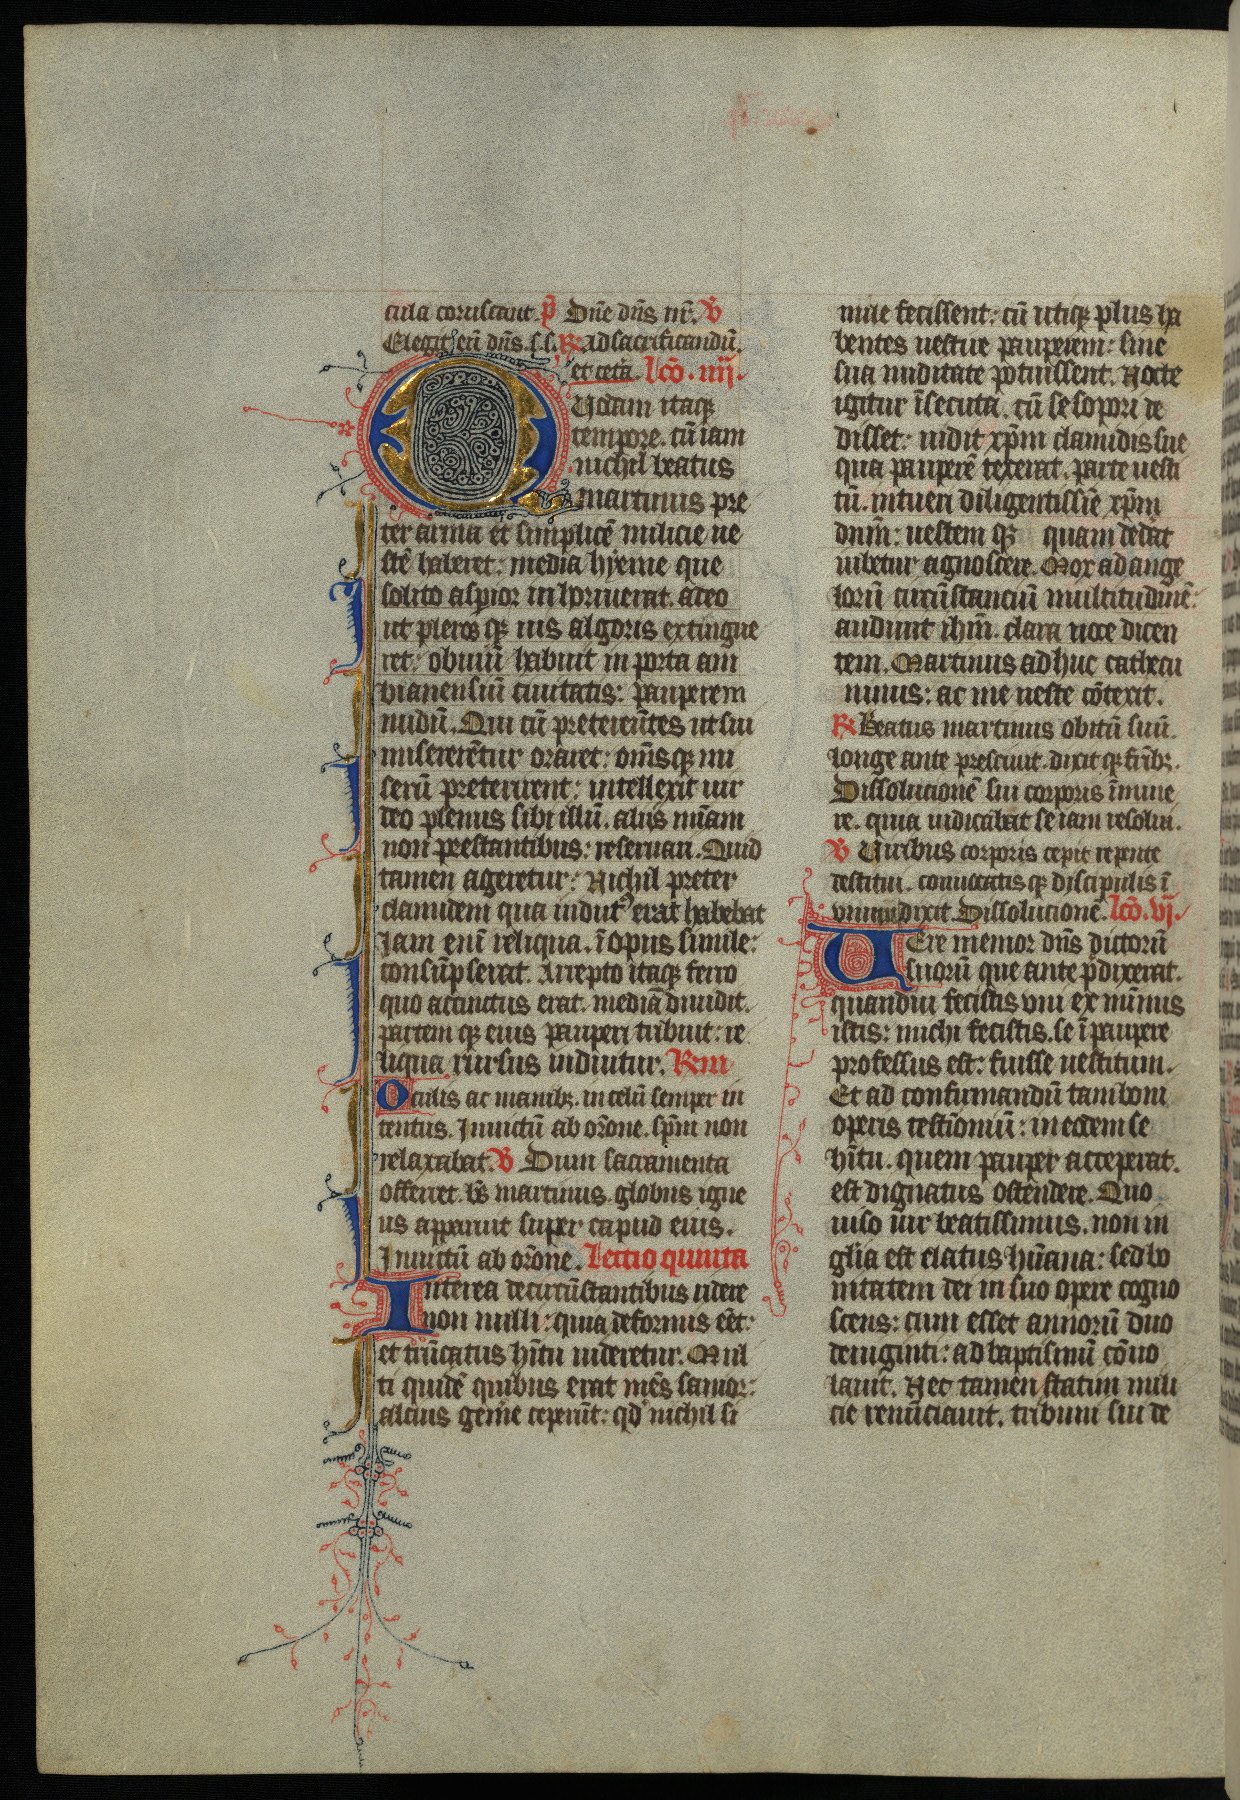 cula coruscant. p̄ Dn̄e dn̄s nr̄. V
Elegit eū dn̄s. s. s. R Ad sacrificandū.
et cetā. lcō. iiij.
Quodam itaqꝫ
tempore. cū iam
nichil beatus
martinus pre
ter arma et simplicē milicie ue
stē haberet: media hyeme que
solito asprior inhorruerat. adeo
ut pleros qꝫ uis algoris extingue
ret: obuiū habuit in porta am
bianensiū ciuitatis: pauperem
nudū. Qui cū pretereūtes ut sui
misererētur oraret: om̄s qꝫ mi
serū preterirent: intellexit uir
deo plenus sibi illū. aliis mīam
non prestantibus: reseruari. Quid
tamen ageretur: Nichil preter
clamidem qua indutꝰ erat habebat
Jam enī reliqua. ī opus simile:
consūpserat. Arrepto itaqꝫ ferro
quo accinctus erat. mediā diuidit.
partem qꝫ eius pauperi tribuit: re
liqua rursus induitur. Rm
Oculis ac manibꝫ. in celū semper in
tentus. Jnuictū ab or̄one. sp̄m non
relaxabat. V Dum sacramenta
offerret. bs̄ martinus. globus igne
us apparuit super capud eius.
Jnuictū ab or̄one. Lectio quinta
Interea de circūstantibus ridere
non nulli: quia deformis eēt:
et trūcatus hītu uideretur. Mul
ti quidē quibus erat mēs sanior:
alcius gemē ceperūt: qd nichil si
mile fecissent: cū utiqꝫ plus ha
bentes uestire pauperem: sine
sua nuditate potuissent. Nocte
igitur īsecuta. cū se sopori de
disset: uidit xp̄m clamidis sue
qua pauperē texerat. parte uesti
tū. intueri diligentissīe xp̄m
dnm̄: uestem qꝫ quam dedāt
iubetur agnoscere. Mox ad ange
lorū circūstanciū multitudinē:
audiunt ihm̄. clara uoce dicen
tem. Martinus ad huc cathecu
minus: ac me ueste cōtexit.
R Beatus martinus obitū suū.
longe ante presciuit. dixit qꝫ frībꝫ.
Dissolucionē sui corporis īmine
re. quia iudicabat se iam resolui.
V Viribus corporis cepit repente
destitui. conuocatis qꝫ discipulis ī
unum dixit. Dissolucionē. lcō. vj.
Uere memor dn̄s dictorū
suorū que ante p̄dixerat.
quandiu fecistis vni ex mīmis
istis: michi fecistis. se ī paupere
professus est: fuisse uestitum.
Et ad confirmandū tam boni
operis testīoniū: in eodem se
hītu. quem pauper acceperat.
est dignatus ostendere. Quo
uiso uir beatissimus. non in
glīa est elatus hūana: sed bo
nitatem dei in suo opere cogno
scens: cum esset annorū duo
deuiginti: ad baptismū cōuo
lauit. Nec tamen statim mili
cie renūciauit. tribuni sui de